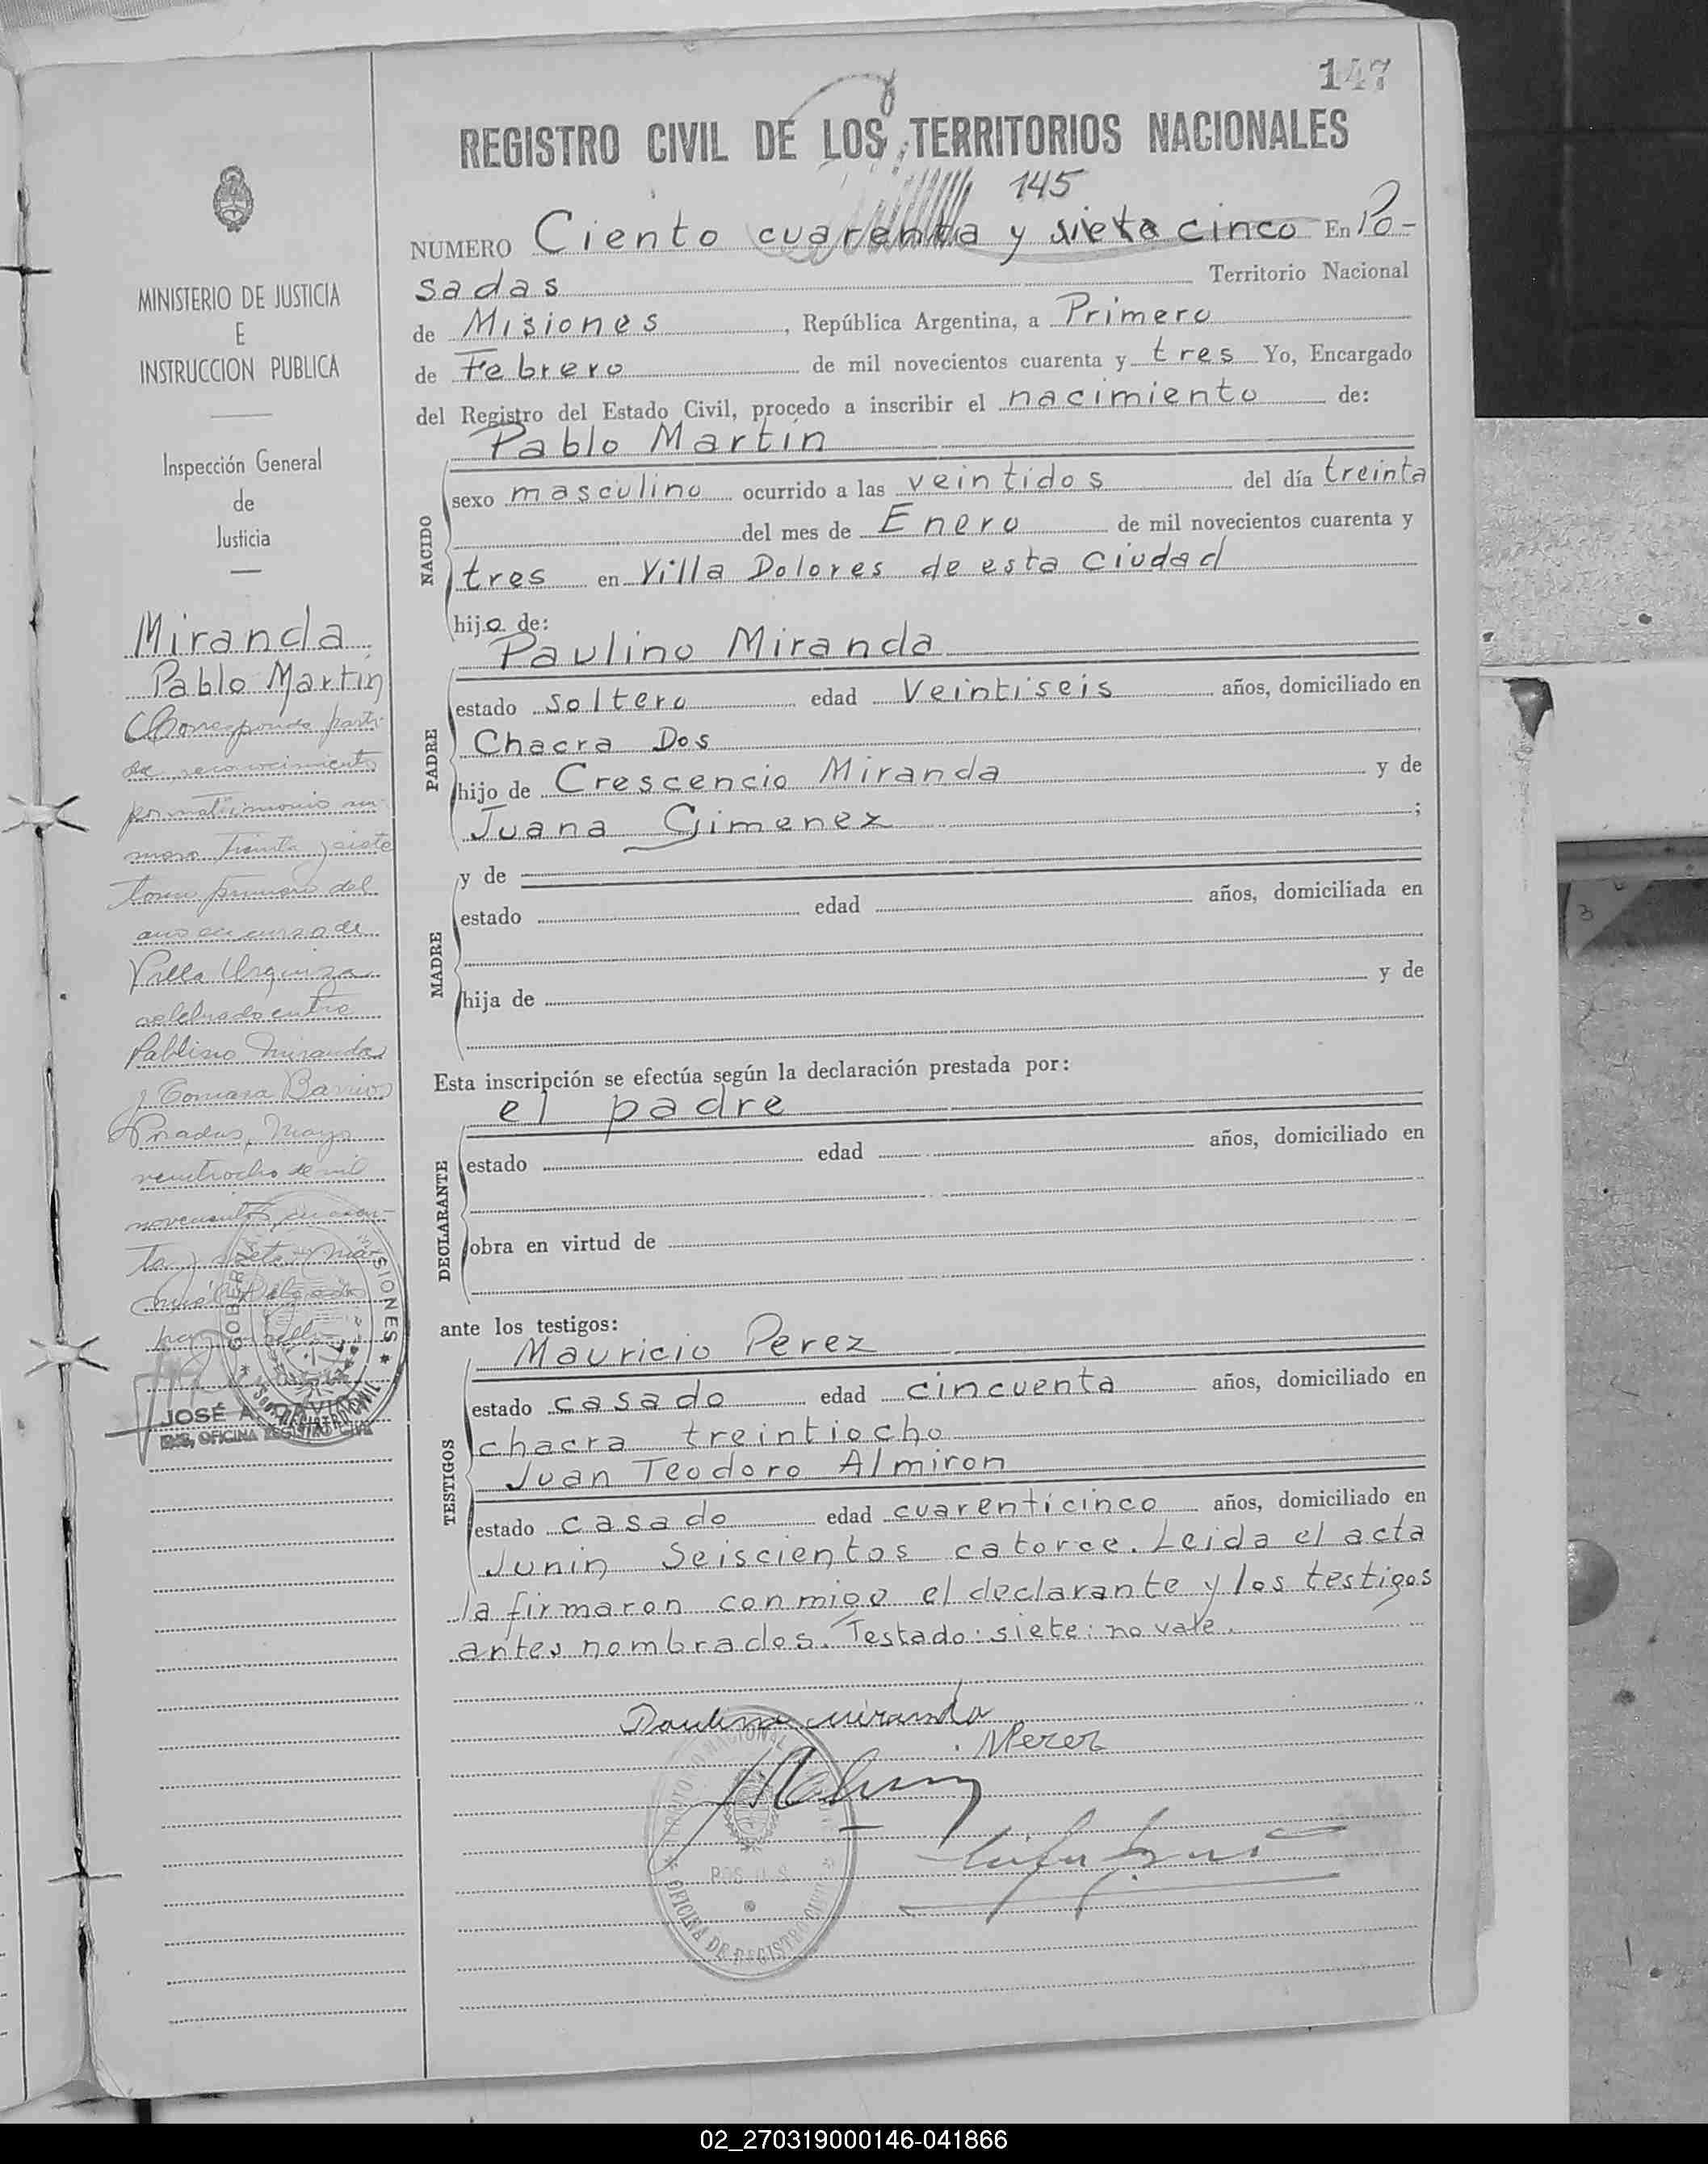 147
REGISTRO CIVIL DE LOS TERRITORIOS NACIONALES
145
NUMERO Ciento cuarenta y siete cinco En Po-
sadas Territorio Nacional
de Misiones, República Argentina, a Primero
de Febrero de mil novecientos cuarenta y tres Yo, Encargado
del Registro del Estado Civil, procedo a inscribir el nacimiento de:
Pablo Martín
NACIDO
sexo masculino ocurrido a las veintidos del día treinta
del mes de Enero de mil novecientos cuarenta y
tres en Villa Dolores de esta Ciudad
hijo de:
Paulino Miranda
PADRE
estado soltero edad Veintiseis años, domiciliado en
Chacra Dos
hijo de Crescencio Miranda y de
Juana Gimenez ;
y de
MADRE
estado edad años, domiciliada en
hija de y de
Esta inscripción se efectúa según la declaración prestada por:
el padre
DECLARANTE
estado edad años, domiciliado en
obra en virtud de
ante los testigos:
Mauricio Perez
TESTIGOS
estado casado edad cincuenta años, domiciliado en
chacra treintiocho
Juan Teodoro Almiron
estado casado edad cuarenticinco años, domiciliado en
Junin Seiscientos catorce. Leida el acta
la firmaron conmigo el declarante y los testigos
antes nombrados. Testado: siete: no vale.
Paulino Miranda
MPerez
OFICINA DE REGISTRO CIVIL
MINISTERIO DE JUSTICIA
E
INSTRUCCION PUBLICA
Inspección General
de
Justicia
Miranda
Pablo Martín
Corresponde parti-
da reconocimiento
por matrimonio nu-
mero treinta y siete
tomo primero del
año en curso de
Villa Urquiza
celebrado entre
Pablino Miranda
y Tomasa Barrios
Posadas, Mayo
veintiocho de mil
novecientos cuaren-
ta y siete
SIONES
JOSÉ A.
ENC. OFICINA REGISTRO CIVIL
02_270319000146-041866